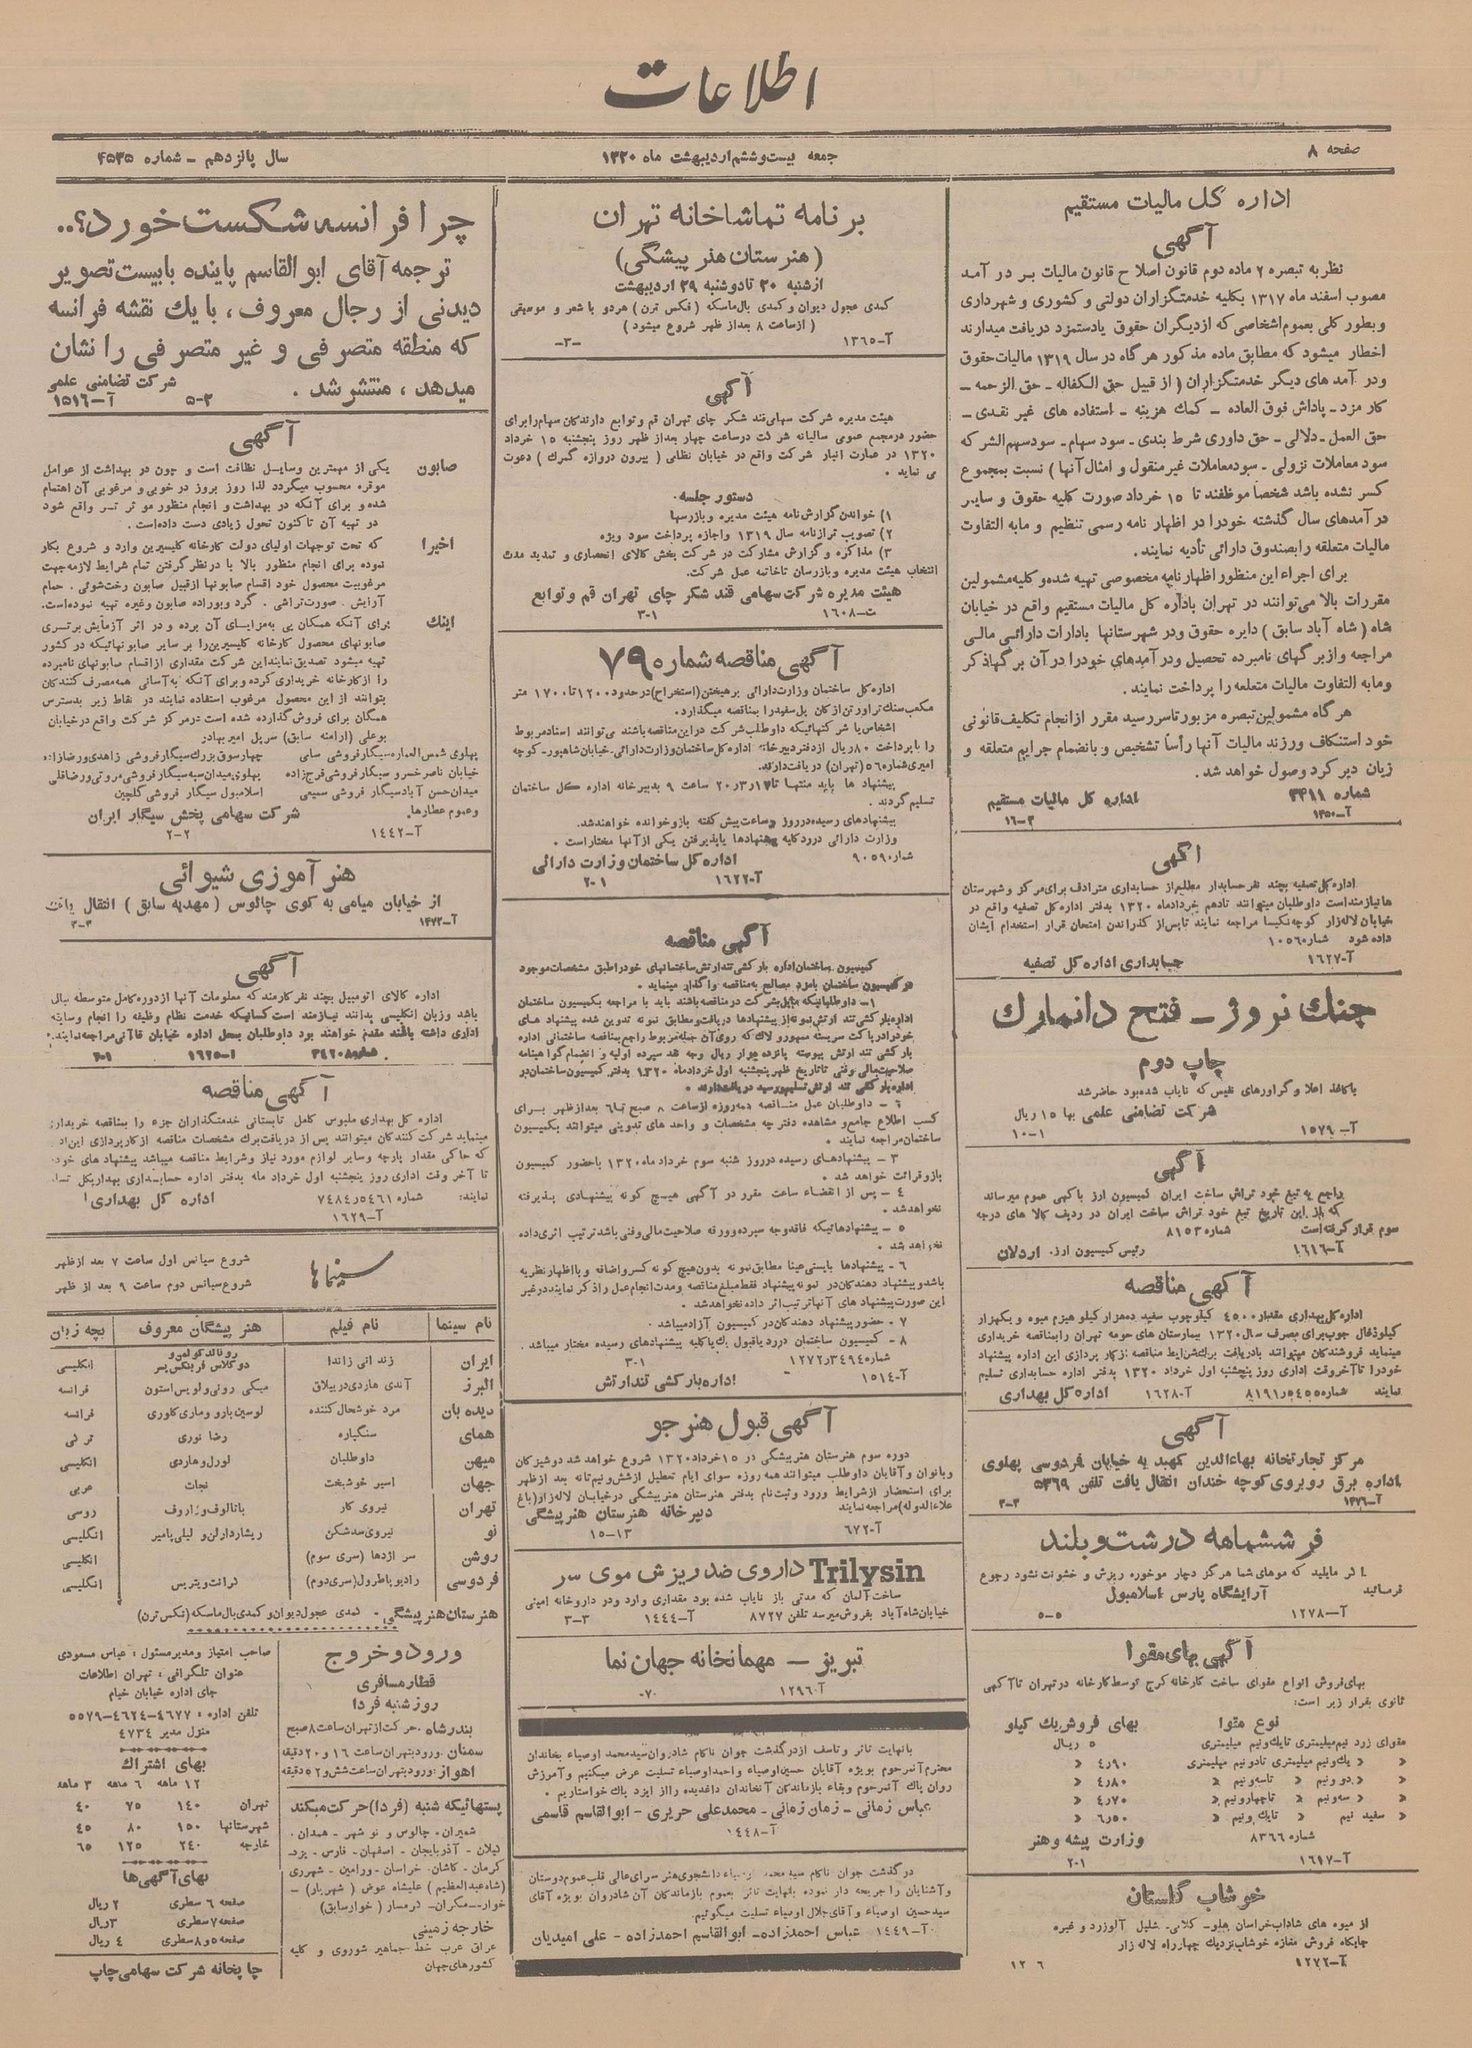 اطلاعات
صفحه ۸
جمعه بیست و ششم اردیبهشت ماه ۱۳۲۰
سال پانزدهم - شماره ۴۵۳۵
اداره کل مالیات مستقیم
آگهی
نظر به تبصره ۲ ماده دوم قانون اصلاح قانون مالیات بر در آمد
مصوب اسفند ماه ۱۳۱۷ بکلیه خدمتگزاران دولتی و کشوری و شهرداری
و بطور کلی بعموم اشخاصی که از دیگران حقوق یا دستمزد دریافت میدارند
اخطار میشود که مطابق ماده مذکور هر گاه در سال ۱۳۱۹ مالیات حقوق
و در آمد های دیگر خدمتگزاران ( از قبیل حق الکفاله - حق الزحمه -
کار مزد - پاداش فوق العاده - کمک هزینه - استفاده های غیر نقدی -
حق العمل - دلالی - حق داوری شرط بندی - سود سهام - سود سهم الشرکه
سود معاملات نزولی - سود معاملات غیر منقول و امثال آنها ) نسبت بمجموع
کسر نشده باشد شخصاً موظفند تا ۱۵ خرداد صورت کلیه حقوق و سایر
در آمدهای سال گذشته خود را در اظهار نامه رسمی تنظیم و مابه التفاوت
مالیات متعلقه را بصندوق دارائی تأدیه نمایند .
برای اجراء این منظور اظهار نامه مخصوصی تهیه شده و کلیه مشمولین
مقررات بالا می‌توانند در تهران باداره کل مالیات مستقیم واقع در خیابان
شاه ( شاه آباد سابق ) دایره حقوق و در شهرستانها بادارات دارائی مالی
مراجعه و از برگهای نامبرده تحصیل و در آمدهای خود را در آن برگها ذکر
و مابه التفاوت مالیات متعلقه را پرداخت نمایند .
هر گاه مشمولین تبصره مزبور تا سر رسید مقرر از انجام تکلیف قانونی
خود استنکاف ورزند مالیات آنها رأساً تشخیص و بانضمام جرایم متعلقه و
زیان دیر کرد وصول خواهد شد .
شماره ۳۴۱۱
اداره کل مالیات مستقیم
آ-۱۳۵۰
۱۶-۳
آگهی
اداره کل تصفیه بچند نفر حسابدار مطلع از حسابداری مترادف برای مرکز و شهرستان
ها نیازمند است داوطلبان میتوانند تا دهم خرداد ماه ۱۳۲۰ بدفتر اداره کل تصفیه واقع در
خیابان لاله زار کوچه نکیسا مراجعه نمایند تا پس از گذراندن امتحان قرار استخدام ایشان
داده شود شماره ۱۰۵۶
آ-۱۶۲۷
حسابداری اداره کل تصفیه
جنك نروژ - فتح دانمارك
چاپ دوم
با کاغذ اعلا و گراورهای نفیس که نایاب شده بود حاضر شد
شرکت تضامنی علمی بها ۱۵ ریال
آ- ۱۵۷۹
۱۰-۱
آگهی
راجع به تیغ خود تراش ساخت ایران کمیسیون ارز بآگهی عموم میرساند
که از این تاریخ تیغ خود تراش ساخت ایران در ردیف کالا های درجه
سوم قرار گرفته است شماره ۸۱۵۳
آ-۱۶۱۶
رئیس کمیسیون ارز . اردلان
آگهی مناقصه
اداره کل بهداری مقدار ۴۵۰۰ کیلو چوب سفید ده هزار کیلو هیزم میوه و یکهزار
کیلو ذغال چوب برای مصرف سال ۱۳۲۰ بیمارستان های حومه تهران را بمناقصه خریداری
مینماید فروشندگان میتوانند با دریافت برك شرایط مناقصه از کار پردازی این اداره پیشنهاد
خود را تا آخر وقت اداری روز پنجشنبه اول خرداد ۱۳۲۰ بدفتر اداره حسابداری تسلیم
نمایند شماره ۸۱۹۱ر۵۴۵۵ آ-۱۶۲۸ اداره کل بهداری
آگهی
مرکز تجارتخانه بهاءالدین کهبد به خیابان فردوسی پهلوی
اداره برق روبروی کوچه خندان انتقال یافت تلفن ۵۳۶۹
آ-۱۴۷۶
۳-۳
فر ششماهه درشت و بلند
اگر مایلید که موهای شما هرگز دچار موخوره ریزش و خشونت نشود رجوع
فرمائید آرایشگاه پارس اسلامبول
آ-۱۲۷۸
۵-۵
آگهی بهای مقوا
بهای فروش انواع مقوای ساخت کارخانه کرج توسط کارخانه در تهران تا آگهی
ثانوی بقرار زیر است:
نوع مقوا بهای فروش یك کیلو
مقوای زرد نیم میلیمتری تا یك و نیم میلیمتری ۵ ریال
« « یك و نیم میلیمتری تا دو نیم میلیمتری ۴٫۹۰ «
« « دو و نیم « تا سه و نیم « ۴٫۸۰ «
« « سه و نیم « تا چهار و نیم « ۴٫۷۰ «
« سفید نیم « تا یك و نیم « ۶٫۵۰ «
شماره ۸۳۶۶ وزارت پیشه و هنر
آ-۱۶۱۷
۲-۱
خوشاب گلستان
از میوه های شاداب خراسان هلو - گلابی - شلیل آلوزرد و غیره
جایگاه فروش مغازه خوشاب نزدیك چهار راه لاله زار
آ-۱۲۷۲
۱۲ ۶
برنامه تماشاخانه تهران
(هنرستان هنر پیشگی)
از شنبه ۲۰ تا دوشنبه ۲۹ اردیبهشت
کمدی عجول دیوان و کمدی بال ماسکه ( فکس ترن ) هر دو با شعر و موسیقی
( از ساعت ۸ بعد از ظهر شروع میشود )
آ-۱۳۶۵
-۳-
آگهی
هیئت مدیره شرکت سهامی قند شکر چای تهران قم و توابع دارندگان سهام را برای
حضور در مجمع عمومی سالیانه شرکت در ساعت چهار بعد از ظهر روز پنجشنبه ۱۵ خرداد
۱۳۲۰ در عمارت انبار شرکت واقع در خیابان نظامی ( بیرون دروازه گمرك ) دعوت
می نماید .
دستور جلسه .
۱) خواندن گزارش نامه هیئت مدیره و بازرسها
۲) تصویب ترازنامه سال ۱۳۱۹ و اجازه پرداخت سود ویژه
۳) مذاکره و گزارش مشارکت در شرکت پخش کالای انحصاری و تمدید مدت
انتخاب هیئت مدیره و بازرسان تا خاتمه عمل شرکت.
هیئت مدیره شرکت سهامی قند شکر چای تهران قم و توابع
ت-۱۶۰۸
۳-۱
آگهی مناقصه شماره ۷۹
اداره کل ساختمان وزارت دارائی برهیختن (استخراج) در حدود ۱۲۰۰ تا ۱۷۰۰ متر
مکعب سنك تراورتن از کان پل سفید را بمناقصه میگذارد.
اشخاص یا شرکتهائیکه داوطلب شرکت در این مناقصه باشند می توانند اسناد مربوط
را با پرداخت ۸۰ ریال از دفتر دبیرخانه اداره کل ساختمان وزارت دارائی - خیابان شاهپور - کوچه
امیری شماره ۵۶ (تهران) دریافت دارند.
پیشنهاد ها باید منتها تا ۲۰٫۳٫۱۷ ساعت ۹ بدبیرخانه اداره کل ساختمان
تسلیم گردند .
پیشنهادهای رسیده در روز و ساعت پیش گفته باز و خوانده خواهند شد.
وزارت دارائی در رد کلیه پیشنهادها یا پذیرفتن یکی از آنها مختار است .
شماره ۹۰۵۹ اداره کل ساختمان وزارت دارائی
آ-۱۶۲۲
۲-۱
آگهی مناقصه
کمیسیون ساختمان اداره بارکشی تند ارتش ساختمانهای خود را طبق مشخصات موجود
در کمیسیون ساختمان با مزد مصالح به مناقصه واگذار مینماید .
۱- داوطلبانیکه مایل بشرکت در مناقصه باشند باید با مراجعه بکمیسیون ساختمان
اداره بارکشی تند ارتش نمونه را دریافت و مطابق نمونه تدوین شده پیشنهاد های
خود را در پاکت سربسته ممهور و لاك که روی آن جمله مربوط راجع بمناقصه ساختمانی اداره
بارکشی تند ارتش پیوسته پانزده هزار ریال وجه نقد سپرده اولیه و انضمام گواهینامه
صلاحیت مالی و فنی تا تاریخ ظهر پنجشنبه اول خرداد ماه ۱۳۲۰ بدفتر کمیسیون ساختمان در
اداره بارکشی تند ارتش تسلیم و رسید دریافت دارند
۲ - داوطلبان عمل مناقصه همه روزه از ساعت ۸ صبح تا ۶ بعد از ظهر برای
کسب اطلاع جامع و مشاهده دفترچه مشخصات و واحد های تدوینی میتوانند بکمیسیون
ساختمان مراجعه نمایند .
۳ - پیشنهادهای رسیده در روز شنبه سوم خرداد ماه ۱۳۲۰ با حضور کمیسیون
باز و قرائت خواهد شد .
۴ - پس از انقضاء ساعت مقرر در آگهی هیچ گونه پیشنهادی پذیرفته
نخواهد شد .
۵ - پیشنهادهائیکه فاقد وجه سپرده و ورقه صلاحیت مالی و فنی باشد ترتیب اثری داده
نخواهد شد .
۶ - پیشنهادها بایستی عینا مطابق نمونه بدون هیچ گونه کسر و اضافه و یا اظهار نظریه
باشد و پیشنهاد دهندگان در نمونه پیشنهاد فقط مبلغ مناقصه و مدت انجام عمل را ذکر نمایند در غیر
این صورت پیشنهاد های آنها ترتیب اثر داده نخواهد شد .
۷ - حضور پیشنهاد دهندگان در کمیسیون آزاد میباشد .
۸ - کمیسیون ساختمان در رد یا قبول یك یا کلیه پیشنهادهای رسیده مختار میباشد .
شماره ۱۲۷۲ر۳۴۹۴
۳-۱
آ-۱۵۱۴
اداره بارکشی تند ارتش
آگهی قبول هنر جو
دوره سوم هنرستان هنرپیشگی در ۱۵ خرداد ۱۳۲۰ شروع خواهد شد دوشیزگان
و بانوان و آقایان داوطلب میتوانند همه روزه سوای ایام تعطیل از شش و نیم تا نه بعد از ظهر
برای استحضار از شرایط ورود و ثبت نام بدفتر هنرستان هنرپیشگی در خیابان لاله زار (باغ
علاءالدوله) مراجعه نمایند دبیرخانه هنرستان هنرپیشگی
آ-۶۷۲
۱۵-۱۳
Trilysin داروی ضد ریزش موی سر
ساخت آلمان که مدتی باز نایاب شده بود مقداری وارد و در داروخانه امینی
خیابان شاه آباد بفروش میرسد تلفن ۸۷۲۷ آ-۱۴۴۴ ۳-۳
تبریز - مهمانخانه جهان نما
آ-۱۲۹۶
۷۰-
با نهایت تاثر و تاسف از در گذشت جوان ناکام شادروان سید محمد اوصیاء بخاندان
محترم آنمرحوم بویژه آقایان حسین اوصیاء و احمد اوصیاء تسلیت عرض میکنیم و آمرزش
روان پاك آنمرحوم و بقاء بازماندگان آنخاندان داغدیده را از ایزد پاك خواستاریم .
عباس زمانی - زمان زمانی - محمد علی حریری - ابوالقاسم قاسمی
آ-۱۴۴۸
در گذشت جوان ناکام سید محمد اوصیاء دانشجوی هنر سرای عالی قلب عموم دوستان
و آشنایان را جریحه دار نموده با نهایت تاثر بعموم بازماندگان آن شادروان بویژه آقای
سید حسین اوصیاء و آقای جلال اوصیاء تسلیت میگوئیم .
آ-۱۴۴۹ عباس احمد زاده - ابوالقاسم احمد زاده - علی امیدیان
چرا فرانسه شکست خورد؟..
ترجمه آقای ابوالقاسم پاینده با بیست تصویر
دیدنی از رجال معروف ، با یك نقشه فرانسه
که منطقه متصرفی و غیر متصرفی را نشان
میدهد ، منتشر شد .
شرکت تضامنی علمی
۵-۲ آ-۱۵۱۶
آگهی
صابون یکی از مهمترین وسایل نظافت است و چون در بهداشت از عوامل
موقره محسوب میگردد لذا روز بروز در خوبی و مرغوبی آن اهتمام
شده و برای آنکه در بهداشت و انجام منظور موثرتر واقع شود
در تهیه آن تاکنون تحول زیادی دست داده است .
اخیرا که تحت توجهات اولیای دولت کارخانه گلیسیرین وارد و شروع بکار
نموده برای انجام منظور بالا با در نظر گرفتن تمام شرایط لازمه جهت
مرغوبیت محصول خود اقسام صابونها از قبیل صابون رختشوئی . حمام
آرایش . صورت تراشی . گرد و بوراده صابون و غیره تهیه نموده است.
اینك برای آنکه همگان پی به مزایای آن برده و در اثر آزمایش برتری
صابونهای محصول کارخانه گلیسرین را بر سایر صابونهائیکه در کشور
تهیه میشود تصدیق نمایند این شرکت مقداری از اقسام صابونهای نامبرده
را از کارخانه خریداری کرده و برای آنکه به آسانی همه مصرف کنندگان
بتوانند از این محصول مرغوب استفاده نمایند در نقاط زیر بدسترس
همگان برای فروش گذارده شده است در مرکز شرکت واقع در خیابان
بوعلی (ارامنه سابق) سر پل امیر بهادر
پهلوی شمس العماره سیگار فروشی سامی چهار سوق بزرك سیگار فروشی زاهدی و رضا زاده
خیابان ناصر خسرو سیگار فروشی فرج زاده پهلوی میدان سپه سیگار فروشی مروتی و رضاقلی
میدان حسن آباد سیگار فروشی سمیعی اسلامبول سیگار فروشی گلچین
و عموم عطارها. شرکت سهامی پخش سیگار ایران
آ-۱۴۴۲
۲-۲
هنر آموزی شیوائی
از خیابان میامی به کوی چالوس ( مهدیه سابق ) انتقال یافت
آ-۱۴۷۲
۳-۳
آگهی
اداره کالای اتومبیل بچند نفر کارمند که معلومات آنها از دوره کامل متوسطه نبال
باشد و زبان انگلیسی بدانند نیازمند است کسانیکه خدمت نظام وظیفه را انجام و سابقه
اداری داشته باشند مقدم خواهند بود داوطلبان بمحل اداره خیابان قاآنی مراجعه نمایند.
شماره ۳۴۲۰۸ آ-۱۶۲۵ ۲-۱
آگهی مناقصه
اداره کل بهداری ملبوس کامل تابستانی خدمتگذاران جزء را بمناقصه خریداری
مینماید شرکت کنندگان میتوانند پس از دریافت برك مشخصات مناقصه از کار پردازی این اداره
که حاکی مقدار پارچه و سایر لوازم مورد نیاز و شرایط مناقصه میباشد پیشنهاد های خود
تا آخر وقت اداری روز پنجشنبه اول خرداد ماه بدفتر اداره حسابداری بهداریکل تسلیم
نمایند: شماره ۷۴۸۴ر۵۴۶۱ اداره کل بهداری
آ-۱۶۲۹
سینماها
شروع سیانس اول ساعت ۷ بعد از ظهر
شروع سیانس دوم ساعت ۹ بعد از ظهر
نام سینما نام فیلم هنر پیشگان معروف بچه زبان
ایران زندانی زاندا رونالد کولمن و دوگلاس فربنکس پسر انگلیسی
البرز آندی هاردی در ییلاق میکی رونی و لویس استون فرانسه
دیده بان مرد خوشحال کننده لوسین بارو و ماری کلوری فرانسه
همای ستگپاره رضا نوری ترکی
میهن داوطلبان لورل و هاردی انگلیسی
جهان اسیر خوشبخت نجات عربی
تهران نیروی کار باتالوف و ژاروف روسی
نو نیروی سد شکن ریشار دارلن و لیلی پامیر انگلیسی
روشن سر اژدها (سری سوم) انگلیسی
فردوسی رادیو پاطرول (سری دوم) گرانت ویتریس انگلیسی
هنرستان هنر پیشگی - کمدی عجول دیوان و کمدی بال ماسکه (فکس ترن)
ورود و خروج
قطار مسافری
روز شنبه فردا
بندر شاه . حرکت از تهران ساعت ۸ صبح
سمنان . ورود بتهران ساعت ۱۶ و ۲۰ دقیقه
اهواز : ورود بتهران ساعت شش و ۵۲ دقیقه
پستهائیکه شنبه (فردا) حرکت میکند
شمیران - چالوس و نو شهر - همدان .
گیلان - آذربایجان - اصفهان - فارس - یزد.
کرمان - کاشان . خراسان - ورامین - شهر ری
(شاه عبدالعظیم ) علیشاه عوض ( شهریار) -
خوار - مکران - گرمسار ( خوار سابق )
خارجه زمینی
عراق عرب خط جماهیر شوروی و کلیه
کشورهای جهان
صاحب امتیاز و مدیر مسئول : عباس مسعودی
عنوان تلگرافی : تهران اطلاعات
جای اداره خیابان خیام
تلفن اداره : ۴۶۷۷-۴۶۲۴-۵۵۷۹
منزل مدیر ۴۷۳۴
بهای اشتراك
۱۲ ماهه ۶ ماهه ۳ ماهه
تهران ۱۴۰ ۷۵ ۴۰
شهرستانها ۱۵۰ ۸۰ ۴۵
خارجه ۲۴۰ ۱۲۵ ۶۵
بهای آگهی ها
صفحه ۶ سطری ۲ ریال
صفحه ۷ سطری ۳ ریال
صفحه ۵ و ۸ سطری ۴ ریال
چاپخانه شرکت سهامی چاپ